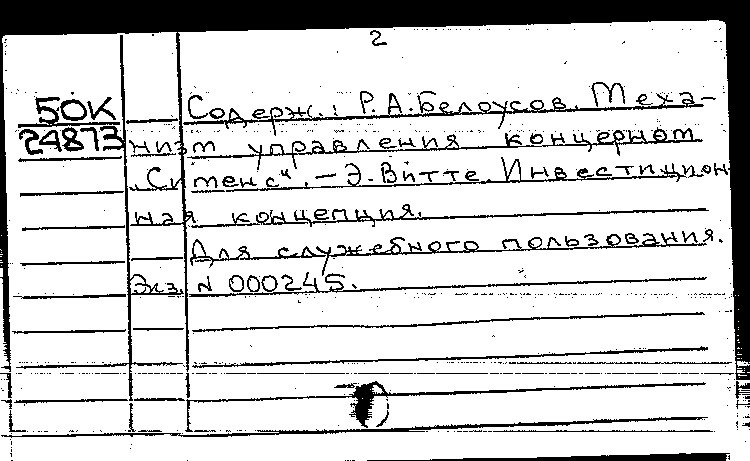 2
50К Содерж.: Р.А.Белоусов. Меха-
24873 низм управления концерном
„Сименс“. – Э.Витте. Инвестицион
ная концепция.
Для служебного пользования.
Экз. N 000245.